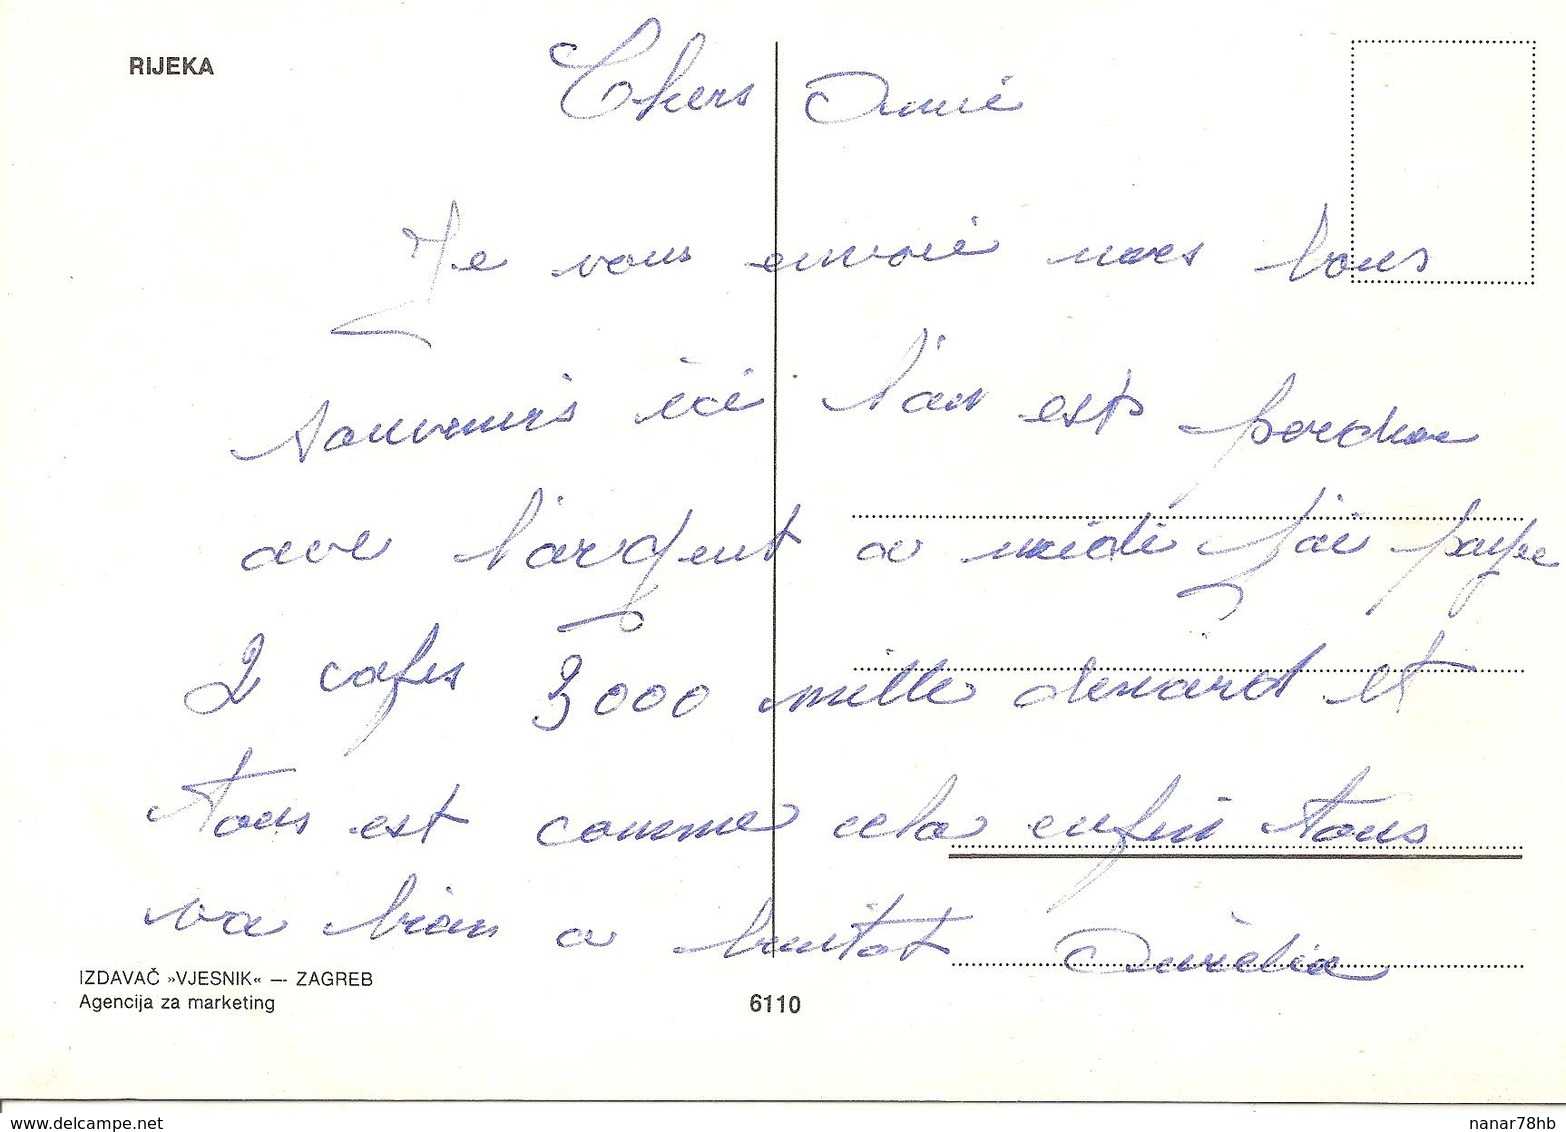 RIJEKA
Chers Amie
Je vous envoie mes bons
souvenirs ici l'an est perdue
ave l'argent a midi j'ai payee
2 cafes 3000 mille denard et
tous est comme cela enfin tous
va bien a bientot Aurélia
IZDAVAČ »VJESNIK« — ZAGREB
Agencija za marketing
6110
www.delcampe.net
nanar78hb